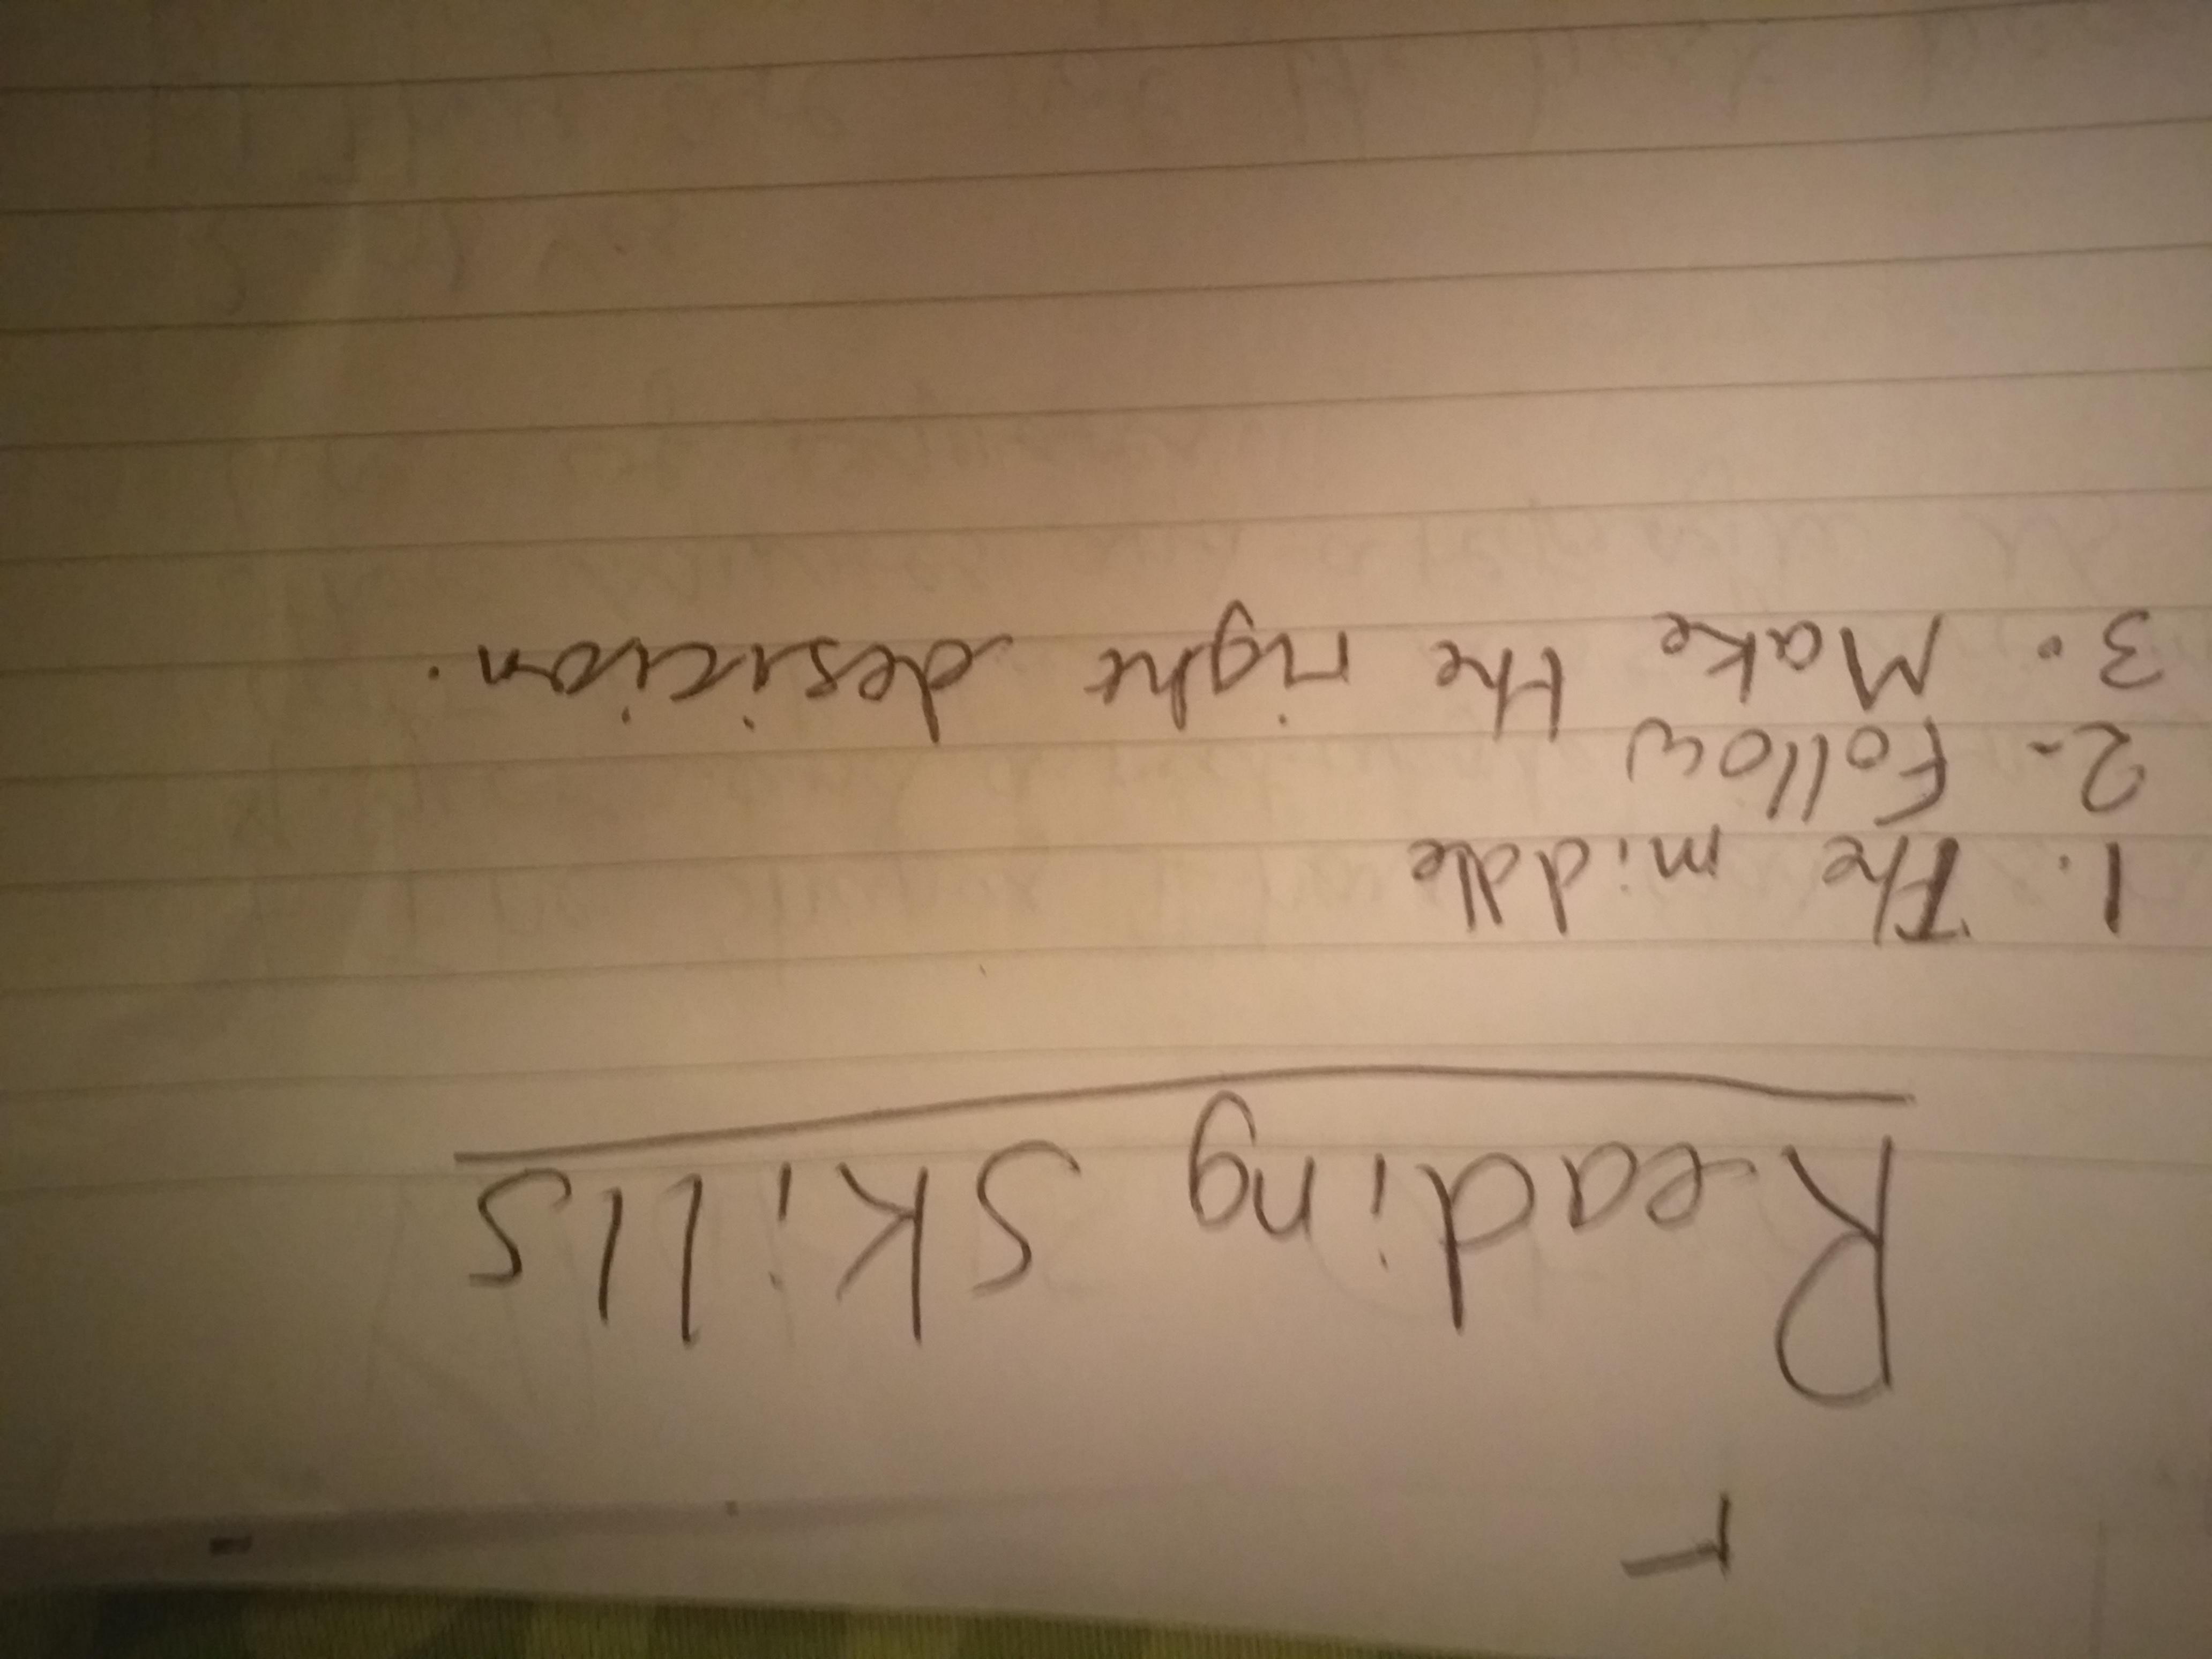 Reading Skills
1. The middle
2. Follow
3. Make the right desicion.